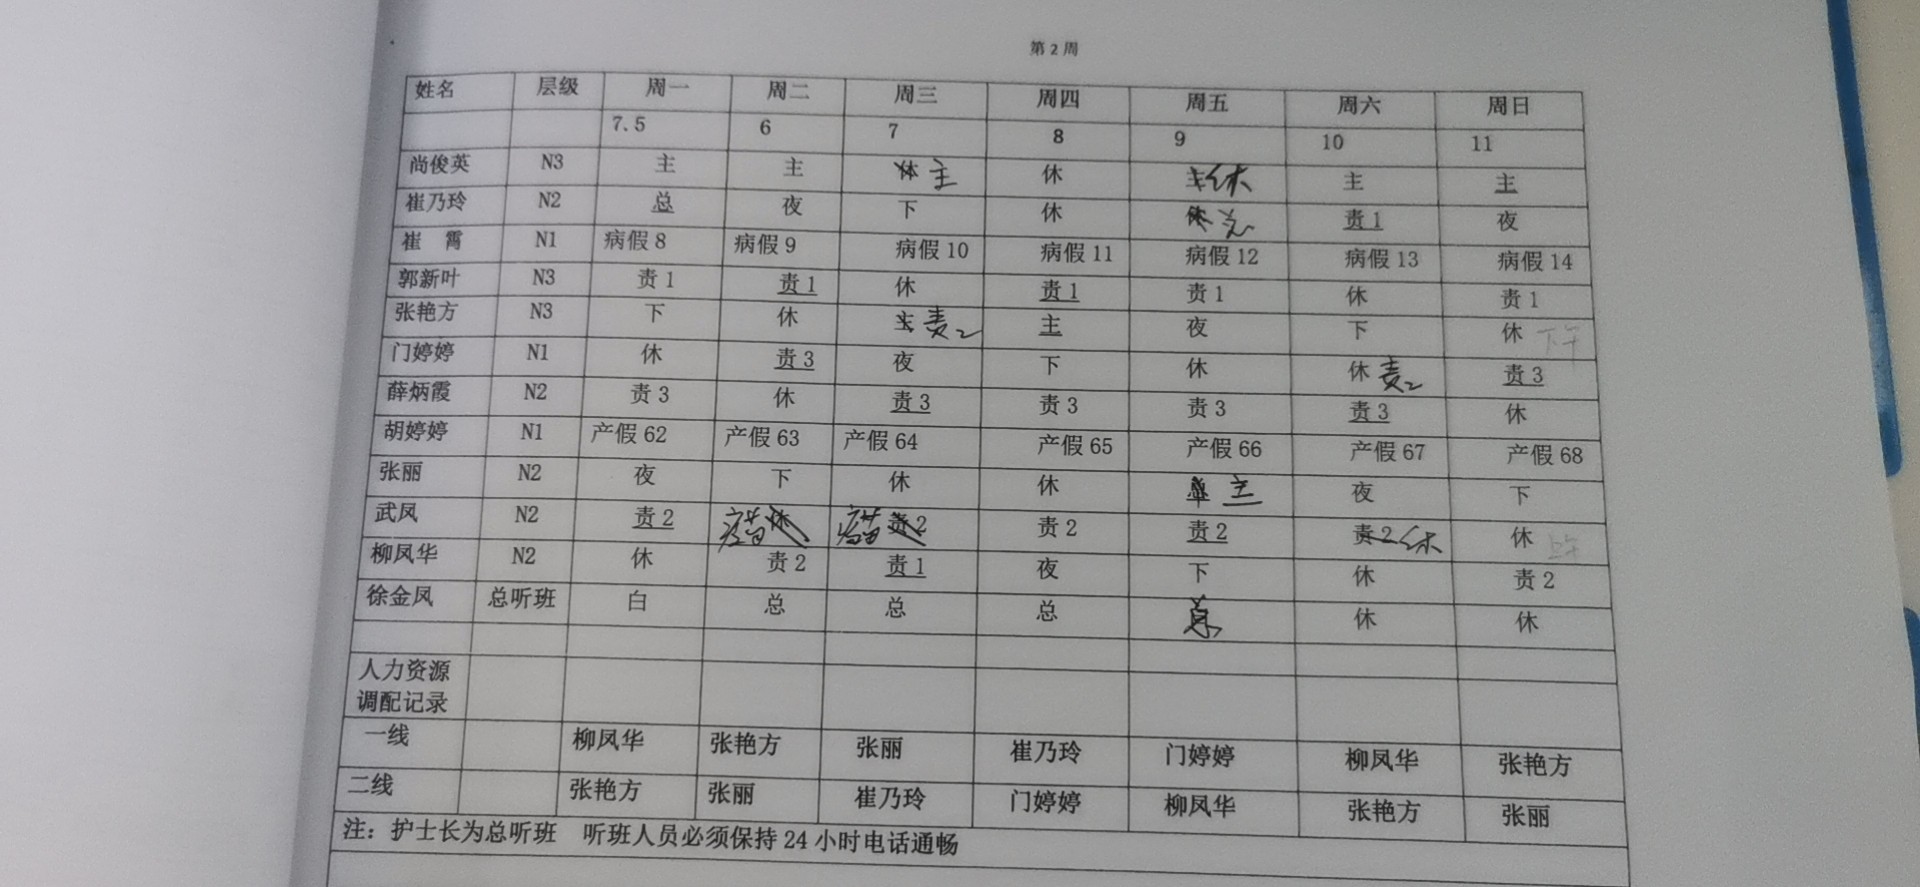 第2周
姓名 层级 周一 周二 周三 周四 周五 周六 周日
7.5 6 7 8 9 10 11
尚俊英 N3 主 主 休 主 休 主 休 主 主
崔乃玲 N2 总 夜 下 休 休 责1 夜
崔 霄 N1 病假8 病假9 病假10 病假11 病假12 病假13 病假14
郭新叶 N3 责1 责1 休 责1 责1 休 责1
张艳方 N3 下 休 责2 主 夜 下 休 下午
门婷婷 N1 休 责3 夜 下 休 休 责2 责3
薛炳霞 N2 责3 休 责3 责3 责3 责3 休
胡婷婷 N1 产假62 产假63 产假64 产假65 产假66 产假67 产假68
张丽 N2 夜 下 休 休 主 夜 下
武凤 N2 责2 疫苗 休 疫苗 责2 责2 责2 责2 休 休
柳凤华 N2 休 责2 责1 夜 下 休 责2
徐金凤 总听班 白 总 总 总 总 休 休
人力资源
调配记录
一线 柳凤华 张艳方 张丽 崔乃玲 门婷婷 柳凤华 张艳方
二线 张艳方 张丽 崔乃玲 门婷婷 柳凤华 张艳方 张丽
注：护士长为总听班 听班人员必须保持24小时电话通畅